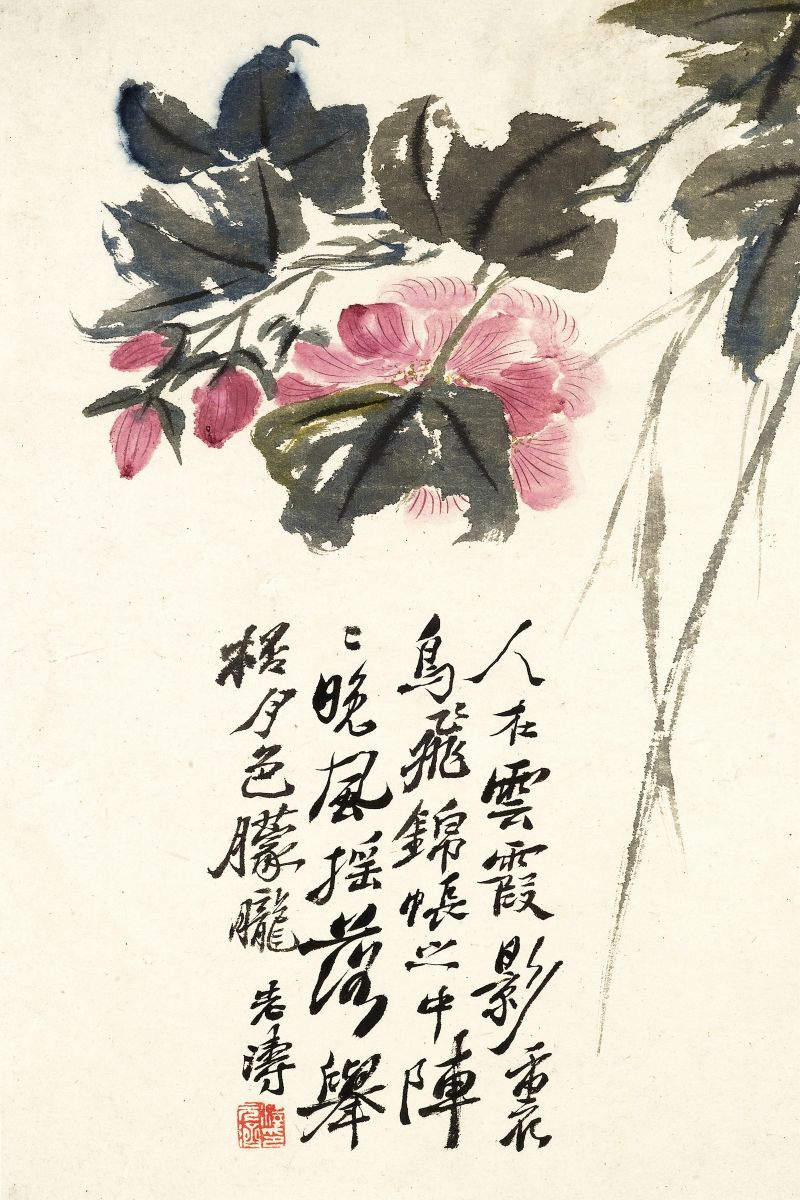 人在雲霞影裏
鳥飛錦帳之中陣
〻晚風搖落舉
桮夕色朦朧 老濤